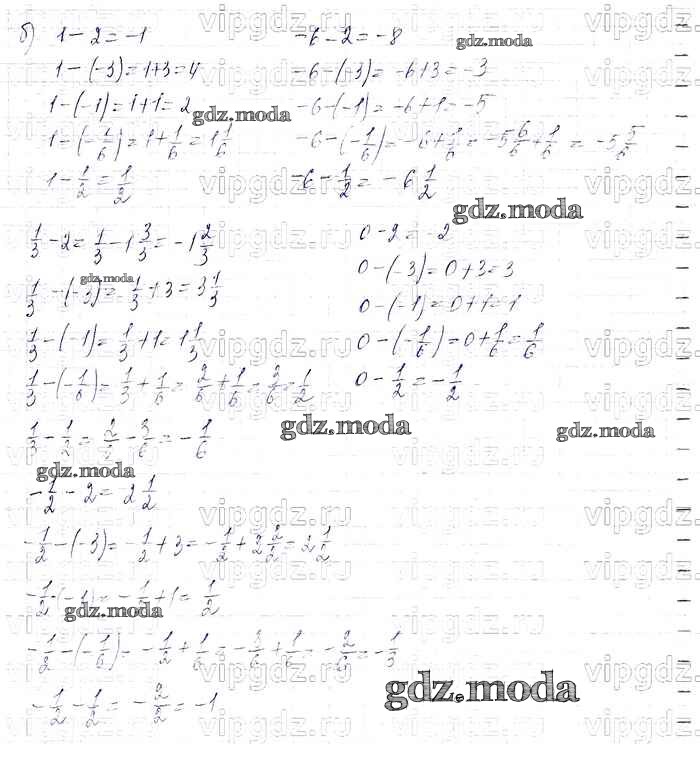 б) 1 - 2 = -1
1 - (-3) = 1+3 = 4
1 - (-1) = 1+1 = 2
1 - (-1/6) = 1 + 1/6 = 1 1/6
1 - 1/2 = 1/2
-6 - 2 = -8
-6 - (-3) = -6+3 = -3
-6 - (-1) = -6+1 = -5
-6 - (-1/6) = -6 + 1/6 = -5 6/6 + 1/6 = -5 5/6
-6 - 1/2 = -6 1/2
1/3 - 2 = 1/3 - 1 3/3 = -1 2/3
1/3 - (-3) = 1/3 + 3 = 3 1/3
1/3 - (-1) = 1/3 + 1 = 1 1/3
1/3 - (-1/6) = 1/3 + 1/6 = 2/6 + 1/6 = 3/6 = 1/2
1/3 - 1/2 = 2/6 - 3/6 = -1/6
0 - 2 = -2
0 - (-3) = 0+3 = 3
0 - (-1) = 0+1 = 1
0 - (-1/6) = 0 + 1/6 = 1/6
0 - 1/2 = -1/2
-1/2 - 2 = 2 1/2
-1/2 - (-3) = -1/2 + 3 = -1/2 + 2 2/2 = 2 1/2
-1/2 - (-1) = -1/2 + 1 = 1/2
-1/2 - (-1/6) = -1/2 + 1/6 = -3/6 + 1/6 = -2/6 = -1/3
-1/2 - 1/2 = -2/2 = -1
gdz.moda
vipgdz.ru